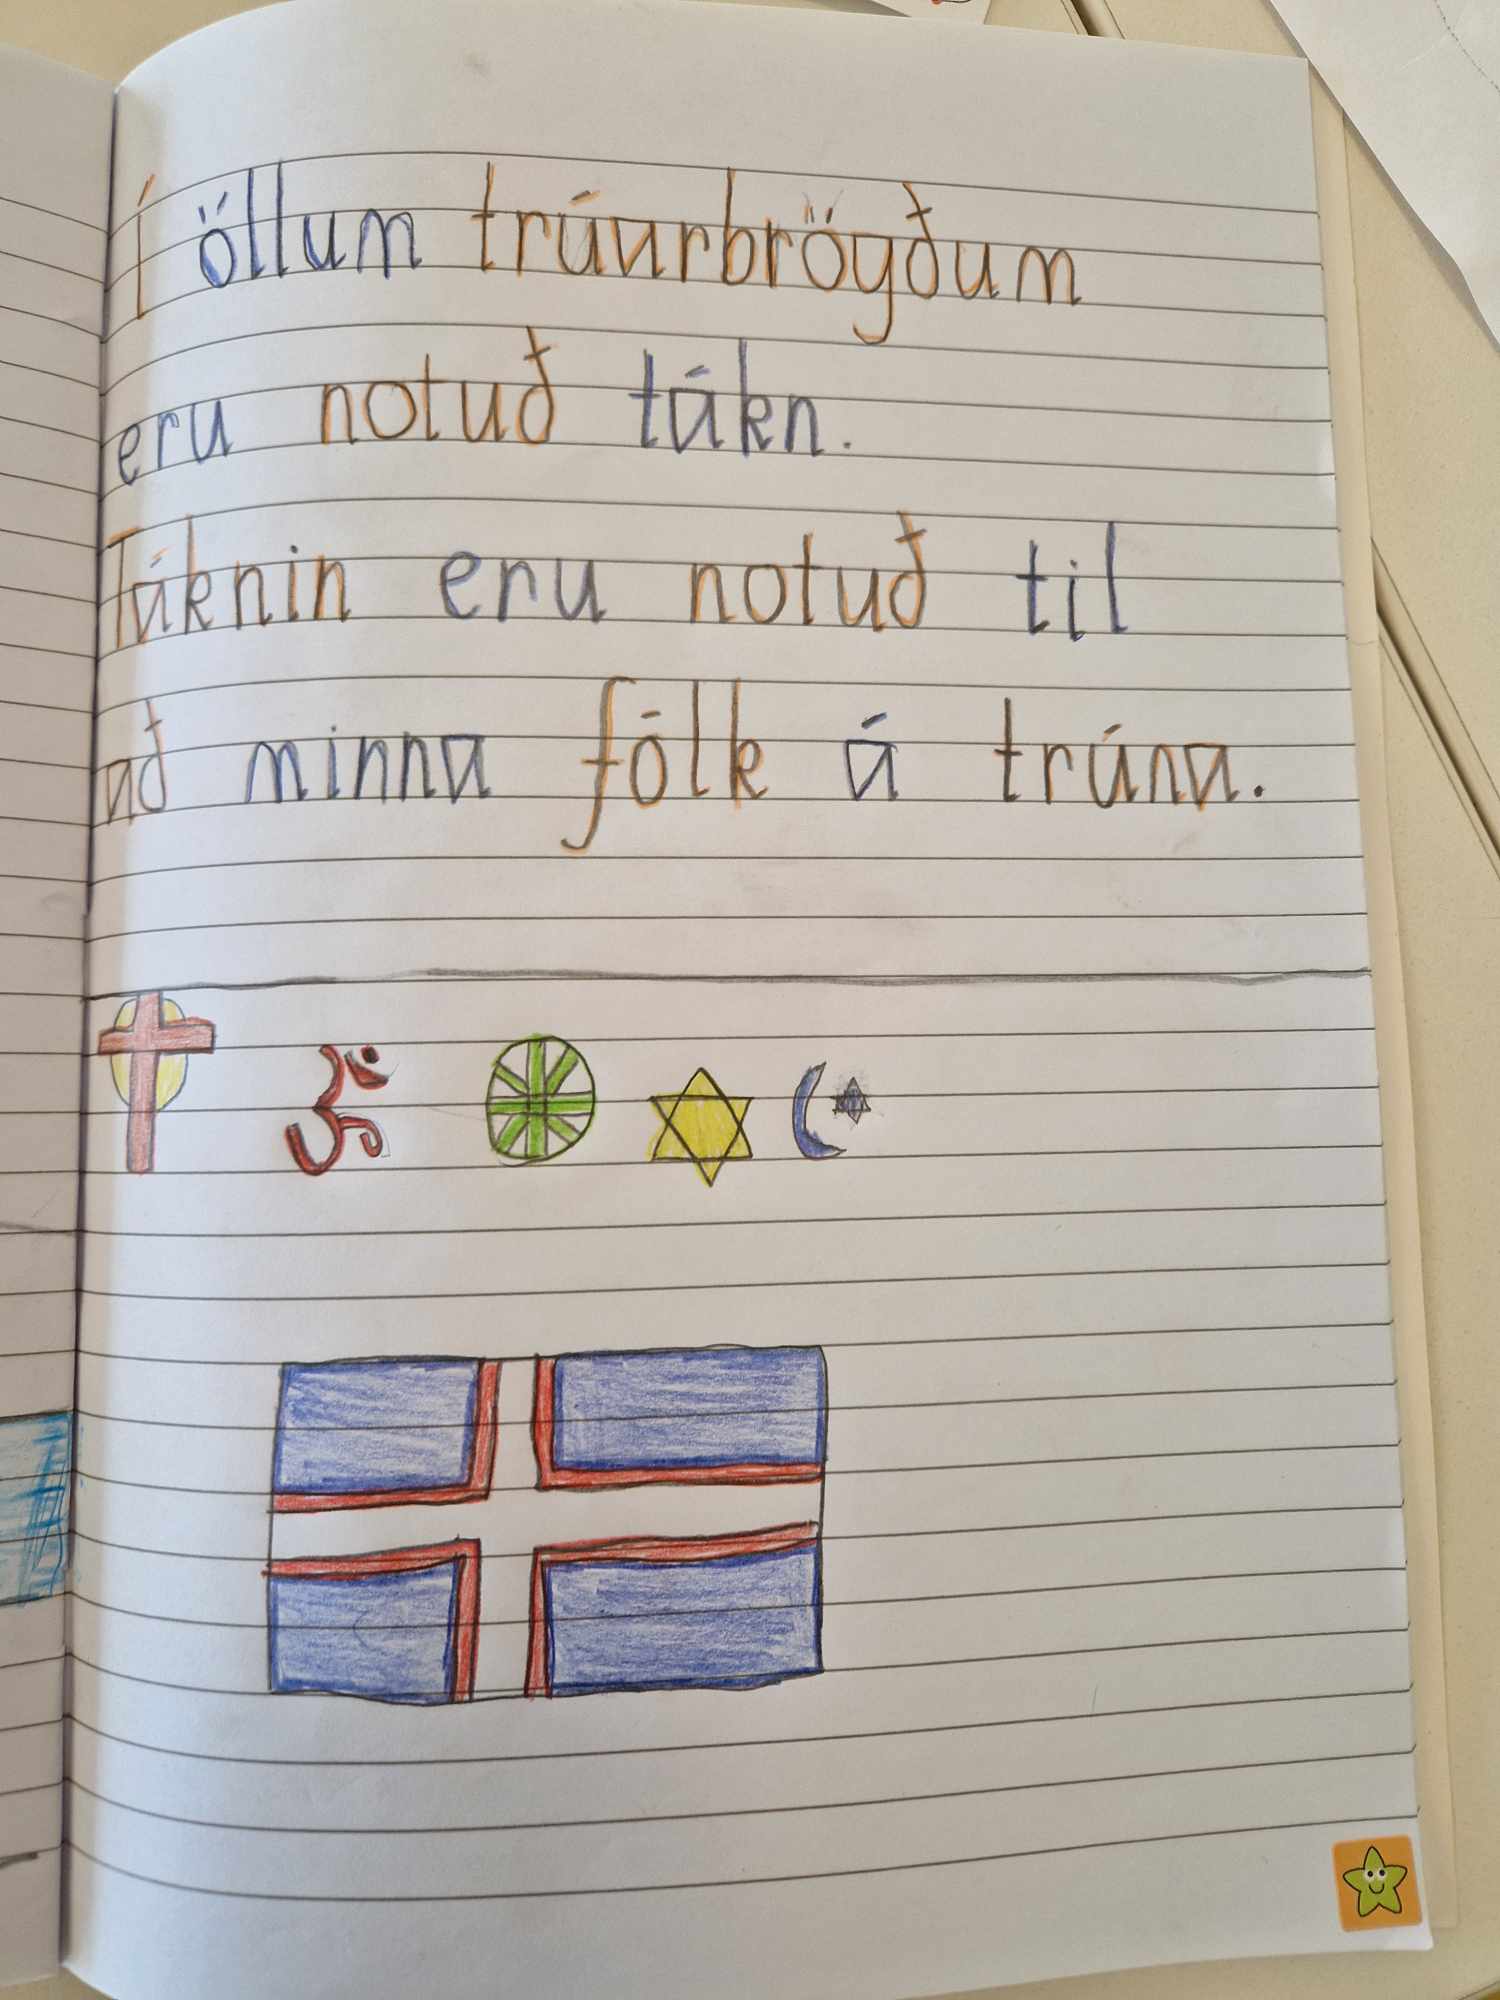 Í öllum trúarbrögðum
eru notuð tákn.
Táknin eru notuð til
að minna fólk á trúna.